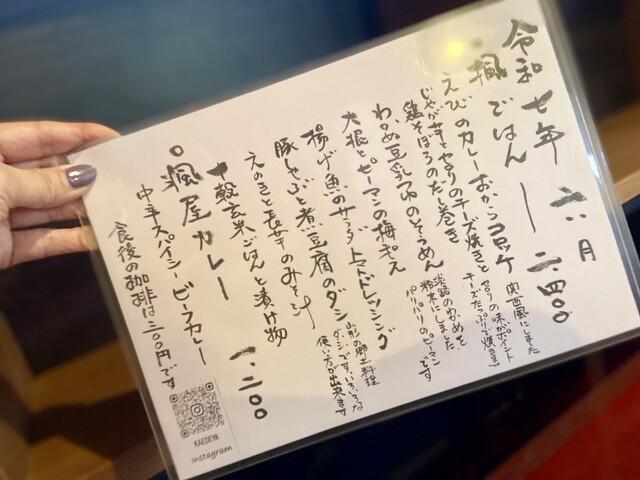 令和七年 六月
・楓ごはん ― 二.四〇〇
えびのカレーおからコロッケ 関西風にしました
じゃが芋とセロリのチーズ焼きと セロリの味がポイント チーズたっぷりで焼く
鶏そぼろのだし巻き
わかめ豆乳つゆのそうめん 淡路のわかめを 粉末にしました
大根とピーマンの梅ポン パリパリのピーマンです
揚げ魚のサラダトマトドレッシング
豚しゃぶと煮豆腐のダシ 山形の郷土料理 ダシです。いろいろな 使い方が出来ます
えのきと長芋のみそ汁
十穀玄米ごはんと漬け物
楓屋カレー 一.二〇〇
中辛スパイシービーフカレー
食後の珈琲は三〇〇円です
KAEDEYA
instagram